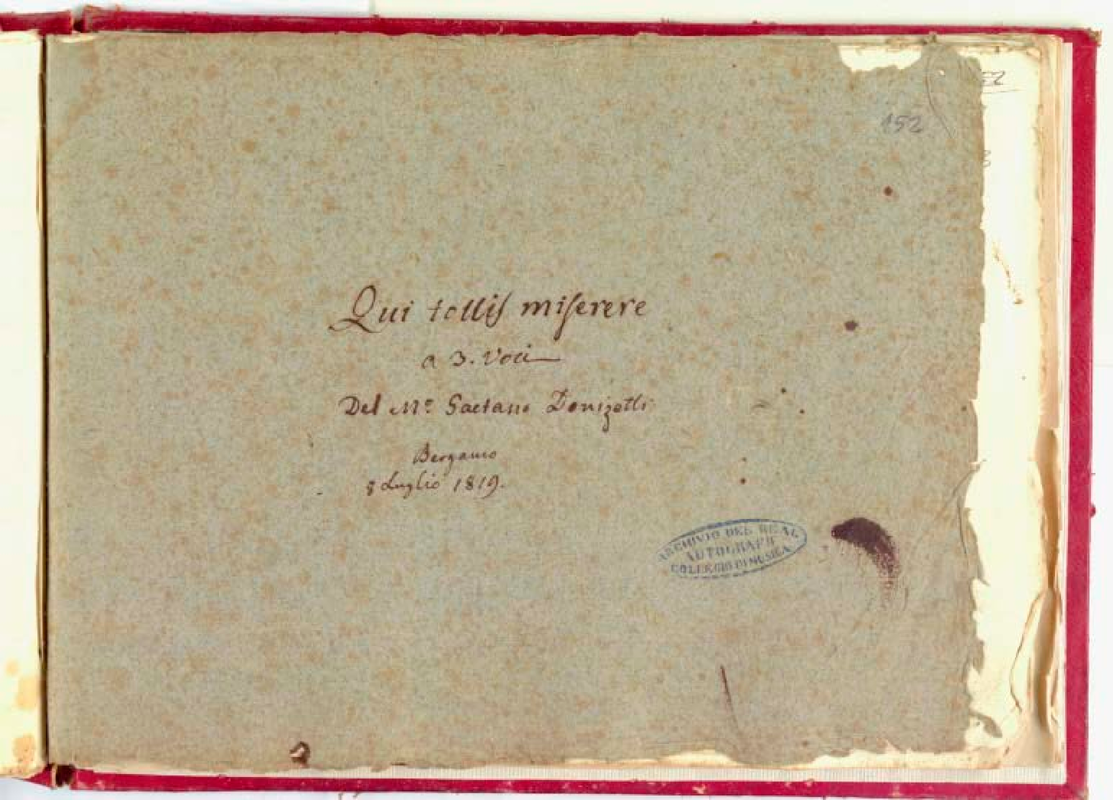 152
Qui tollis miserere
a 3. Voci
Del Mº Gaetano Donizetti
Bergamo
8 Luglio 1819.
ARCHIVIO DEL REAL
AUTOGRAFI
COLLEGIO DI MUSICA